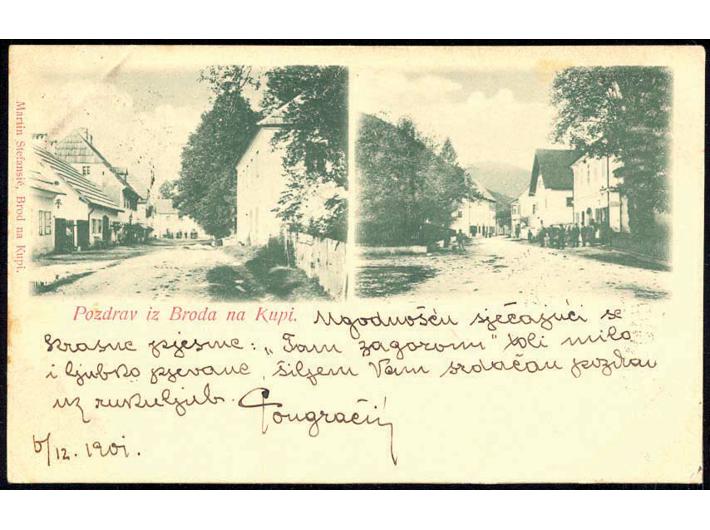 Martin Stefansić, Brod na Kupi.
Pozdrav iz Broda na Kupi. Ugodnošću sjećajući se
krasne pjesme: „Tam zagorami" toli milo
i ljubko pjevane, šiljem Vam srdačan pozdrav
uz rukuljub. Pongračić
6/12. 1901.